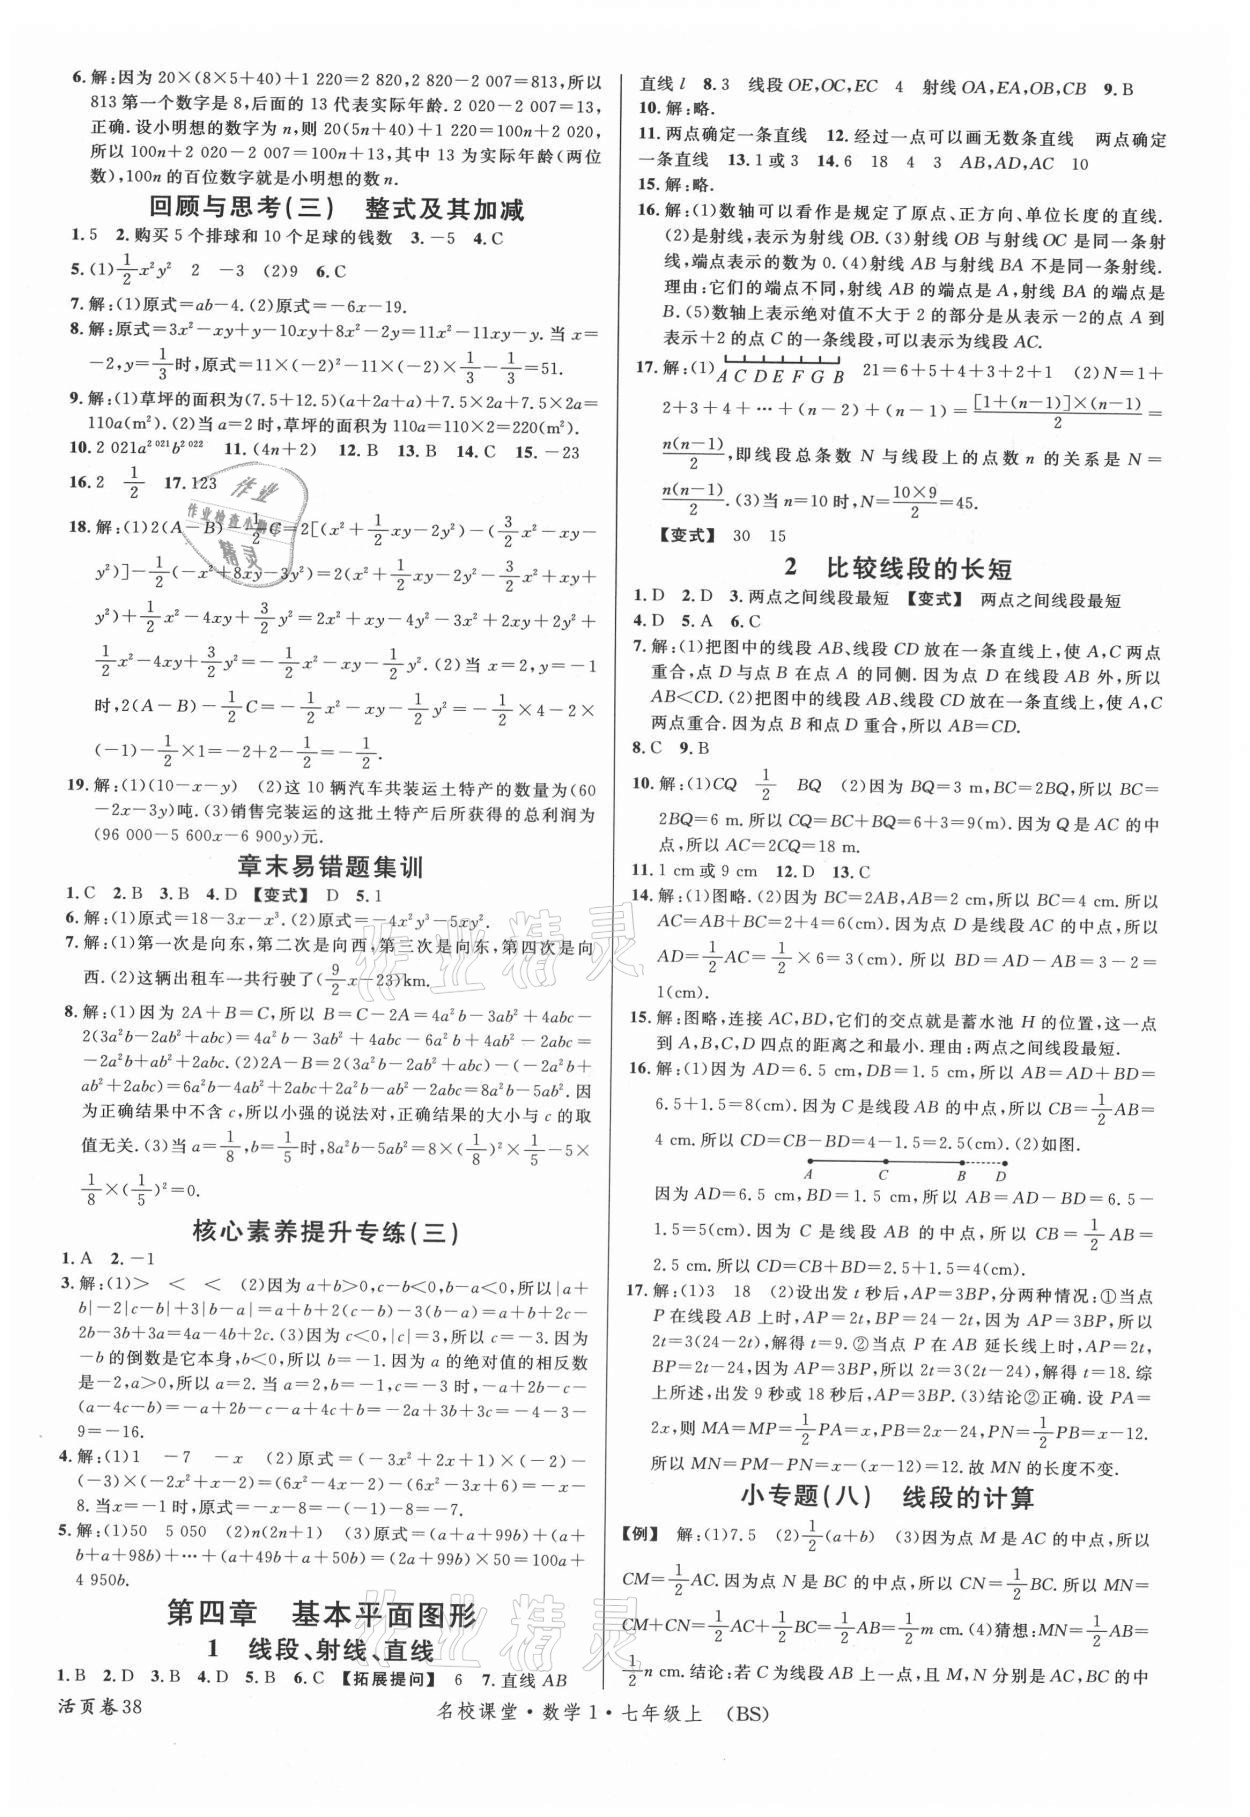 6.解:因为 20×(8×5+40)+1 220=2 820,2 820-2 007=813,所以
813 第一个数字是 8,后面的 13 代表实际年龄.2 020-2 007=13,
正确.设小明想的数字为 n,则 20(5n+40)+1 220=100n+2 020,
所以 100n+2 020-2 007=100n+13,其中 13 为实际年龄(两位
数),100n 的百位数字就是小明想的数 n.
回顾与思考(三) 整式及其加减
1.5 2.购买 5 个排球和 10 个足球的钱数 3.-5 4.C
5.(1)1/2x²y² 2 -3 (2)9 6.C
7.解:(1)原式=ab-4.(2)原式=-6x-19.
8.解:原式=3x²-xy+y-10xy+8x²-2y=11x²-11xy-y.当 x=
-2,y=1/3时,原式=11×(-2)²-11×(-2)×1/3-1/3=51.
9.解:(1)草坪的面积为(7.5+12.5)(a+2a+a)+7.5×2a+7.5×2a=
110a(m²).(2)当 a=2 时,草坪的面积为110a=110×2=220(m²).
10.2 021a²⁰²¹b²⁰²² 11.(4n+2) 12.B 13.B 14.C 15.-23
16.2 1/2 17.123
18.解:(1)2(A-B)-1/2C=2[(x²+1/2xy-2y²)-(3/2x²-xy-
y²)]-1/2(-x²+8xy-3y²)=2(x²+1/2xy-2y²-3/2x²+xy+
y²)+1/2x²-4xy+3/2y²=2x²+xy-4y²-3x²+2xy+2y²+
1/2x²-4xy+3/2y²=-1/2x²-xy-1/2y².(2)当 x=2,y=-1
时,2(A-B)-1/2C=-1/2x²-xy-1/2y²=-1/2×4-2×
(-1)-1/2×1=-2+2-1/2=-1/2.
19.解:(1)(10-x-y) (2)这 10 辆汽车共装运土特产的数量为(60
-2x-3y)吨.(3)销售完装运的这批土特产后所获得的总利润为
(96 000-5 600x-6 900y)元.
章末易错题集训
1.C 2.B 3.B 4.D 【变式】 D 5.1
6.解:(1)原式=18-3x-x³.(2)原式=-4x²y³-5xy².
7.解:(1)第一次是向东,第二次是向西,第三次是向东,第四次是向
西.(2)这辆出租车一共行驶了(9/2x-23)km.
8.解:(1)因为 2A+B=C,所以 B=C-2A=4a²b-3ab²+4abc-
2(3a²b-2ab²+abc)=4a²b-3ab²+4abc-6a²b+4ab²-2abc=
-2a²b+ab²+2abc.(2)2A-B=2(3a²b-2ab²+abc)-(-2a²b+
ab²+2abc)=6a²b-4ab²+2abc+2a²b-ab²-2abc=8a²b-5ab².因
为正确结果中不含 c,所以小强的说法对,正确结果的大小与 c 的取
值无关.(3)当 a=1/8,b=1/5时,8a²b-5ab²=8×(1/8)²×1/5-5×
1/8×(1/5)²=0.
核心素养提升专练(三)
1.A 2.-1
3.解:(1)> < < (2)因为 a+b>0,c-b<0,b-a<0,所以|a+
b|-2|c-b|+3|b-a|=a+b+2(c-b)-3(b-a)=a+b+2c-
2b-3b+3a=4a-4b+2c.(3)因为 c<0,|c|=3,所以 c=-3.因为
-b 的倒数是它本身,b<0,所以 b=-1.因为 a 的绝对值的相反数
是-2,a>0,所以 a=2.当 a=2,b=-1,c=-3 时,-a+2b-c-
(a-4c-b)=-a+2b-c-a+4c+b=-2a+3b+3c=-4-3-
9=-16.
4.解:(1)1 -7 -x (2)原式=(-3x²+2x+1)×(-2)-
(-3)×(-2x²+x-2)=(6x²-4x-2)-(6x²-3x+6)=-x-
8.当x=-1 时,原式=-x-8=-(-1)-8=-7.
5.解:(1)50 5 050 (2)n(2n+1) (3)原式=(a+a+99b)+(a+
b+a+98b)+⋯+(a+49b+a+50b)=(2a+99b)×50=100a+
4 950b.
第四章 基本平面图形
1 线段、射线、直线
1.B 2.D 3.B 4.D 5.B 6.C 【拓展提问】 6 7.直线 AB
直线 l 8.3 线段 OE,OC,EC 4 射线 OA,EA,OB,CB 9.B
10.解:略.
11.两点确定一条直线 12.经过一点可以画无数条直线 两点确定
一条直线 13.1 或 3 14.6 18 4 3 AB,AD,AC 10
15.解:略.
16.解:(1)数轴可以看作是规定了原点、正方向、单位长度的直线.
(2)是射线,表示为射线 OB.(3)射线 OB 与射线 OC 是同一条射
线,端点表示的数为 0.(4)射线 AB 与射线 BA 不是同一条射线.
理由:它们的端点不同,射线 AB 的端点是 A,射线 BA 的端点是
B.(5)数轴上表示绝对值不大于 2 的部分是从表示-2的点 A 到
表示+2 的点 C 的一条线段,可以表示为线段 AC.
17.解:(1) A C D E F G B 21=6+5+4+3+2+1 (2)N=1+
2+3+4+⋯+(n-2)+(n-1)=[1+(n-1)]×(n-1)/2=
n(n-1)/2,即线段总条数 N 与线段上的点数 n 的关系是 N=
n(n-1)/2.(3)当 n=10 时,N=10×9/2=45.
【变式】 30 15
2 比较线段的长短
1.D 2.D 3.两点之间线段最短 【变式】 两点之间线段最短
4.D 5.A 6.C
7.解:(1)把图中的线段 AB、线段 CD 放在一条直线上,使 A,C 两点
重合,点 D 与点 B 在点 A 的同侧.因为点 D 在线段 AB 外,所以
AB<CD.(2)把图中的线段 AB、线段 CD 放在一条直线上,使 A,C
两点重合.因为点 B 和点 D 重合,所以 AB=CD.
8.C 9.B
10.解:(1)CQ 1/2 BQ (2)因为 BQ=3 m,BC=2BQ,所以 BC=
2BQ=6 m.所以 CQ=BC+BQ=6+3=9(m).因为 Q 是 AC 的中
点,所以 AC=2CQ=18 m.
11.1 cm 或 9 cm 12.D 13.C
14.解:(1)图略.(2)因为 BC=2AB,AB=2 cm,所以 BC=4 cm.所以
AC=AB+BC=2+4=6(cm).因为点 D 是线段 AC 的中点,所以
AD=1/2AC=1/2×6=3(cm).所以 BD=AD-AB=3-2=
1(cm).
15.解:图略,连接 AC,BD,它们的交点就是蓄水池 H 的位置,这一点
到 A,B,C,D 四点的距离之和最小.理由:两点之间线段最短.
16.解:(1)因为 AD=6.5 cm,DB=1.5 cm,所以 AB=AD+BD=
6.5+1.5=8(cm).因为 C 是线段 AB 的中点,所以 CB=1/2AB=
4 cm.所以 CD=CB-BD=4-1.5=2.5(cm).(2)如图.
A C B D
因为 AD=6.5 cm,BD=1.5 cm,所以 AB=AD-BD=6.5-
1.5=5(cm).因为 C 是线段 AB 的中点,所以 CB=1/2AB=
2.5 cm.所以 CD=CB+BD=2.5+1.5=4(cm).
17.解:(1)3 18 (2)设出发 t 秒后,AP=3BP,分两种情况:①当点
P 在线段 AB 上时,AP=2t,BP=24-2t,因为 AP=3BP,所以
2t=3(24-2t),解得 t=9.②当点 P 在 AB 延长线上时,AP=2t,
BP=2t-24,因为 AP=3BP,所以 2t=3(2t-24),解得 t=18.综
上所述,出发 9 秒或 18 秒后,AP=3BP.(3)结论②正确.设 PA=
2x,则 MA=MP=1/2PA=x,PB=2x-24,PN=1/2PB=x-12.
所以 MN=PM-PN=x-(x-12)=12.故 MN 的长度不变.
小专题(八) 线段的计算
【例】 解:(1)7.5 (2)1/2(a+b) (3)因为点 M 是 AC 的中点,所以
CM=1/2AC.因为点 N 是 BC 的中点,所以 CN=1/2BC.所以 MN=
CM+CN=1/2AC+1/2BC=1/2AB=1/2m cm.(4)猜想:MN=1/2AB=
1/2n cm.结论:若 C 为线段 AB 上一点,且 M,N 分别是 AC,BC 的中
活页卷 38
名校课堂·数学1·七年级上 (BS)
作业
作业检查小助手
精灵
作业精灵
作业精灵